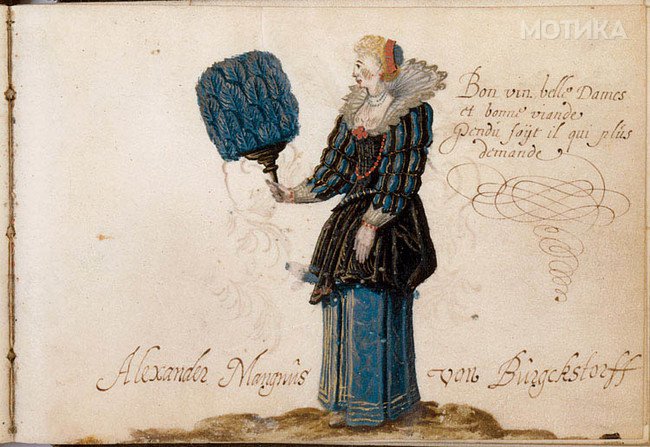 МОТИКА
Bon vin belle Dames
et bonne viande
Pendu soijt il qui plus
demande
Alexander Mangnus von Burgckstorff